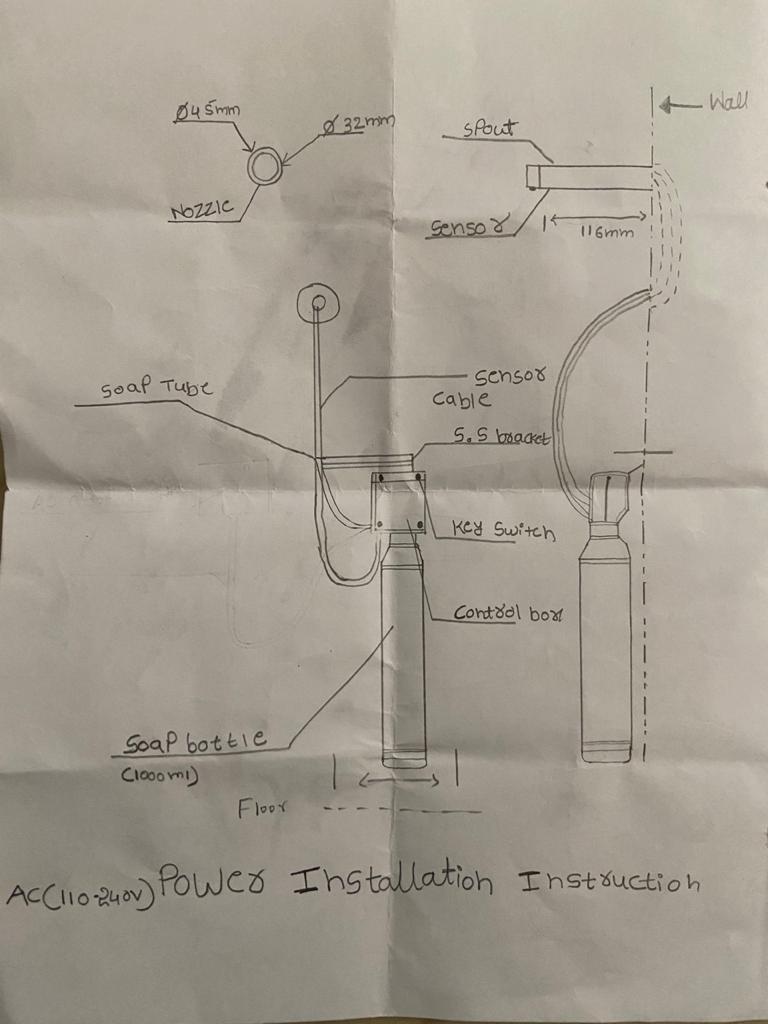 Ø45mm
Ø 32mm
Nozzle
Wall
Spout
Sensor
116mm
Soap Tube
Sensor
Cable
S.S bracket
Key Switch
Control box
Soap bottle
(1000ml)
Floor
AC(110-240V) Power Installation Instruction